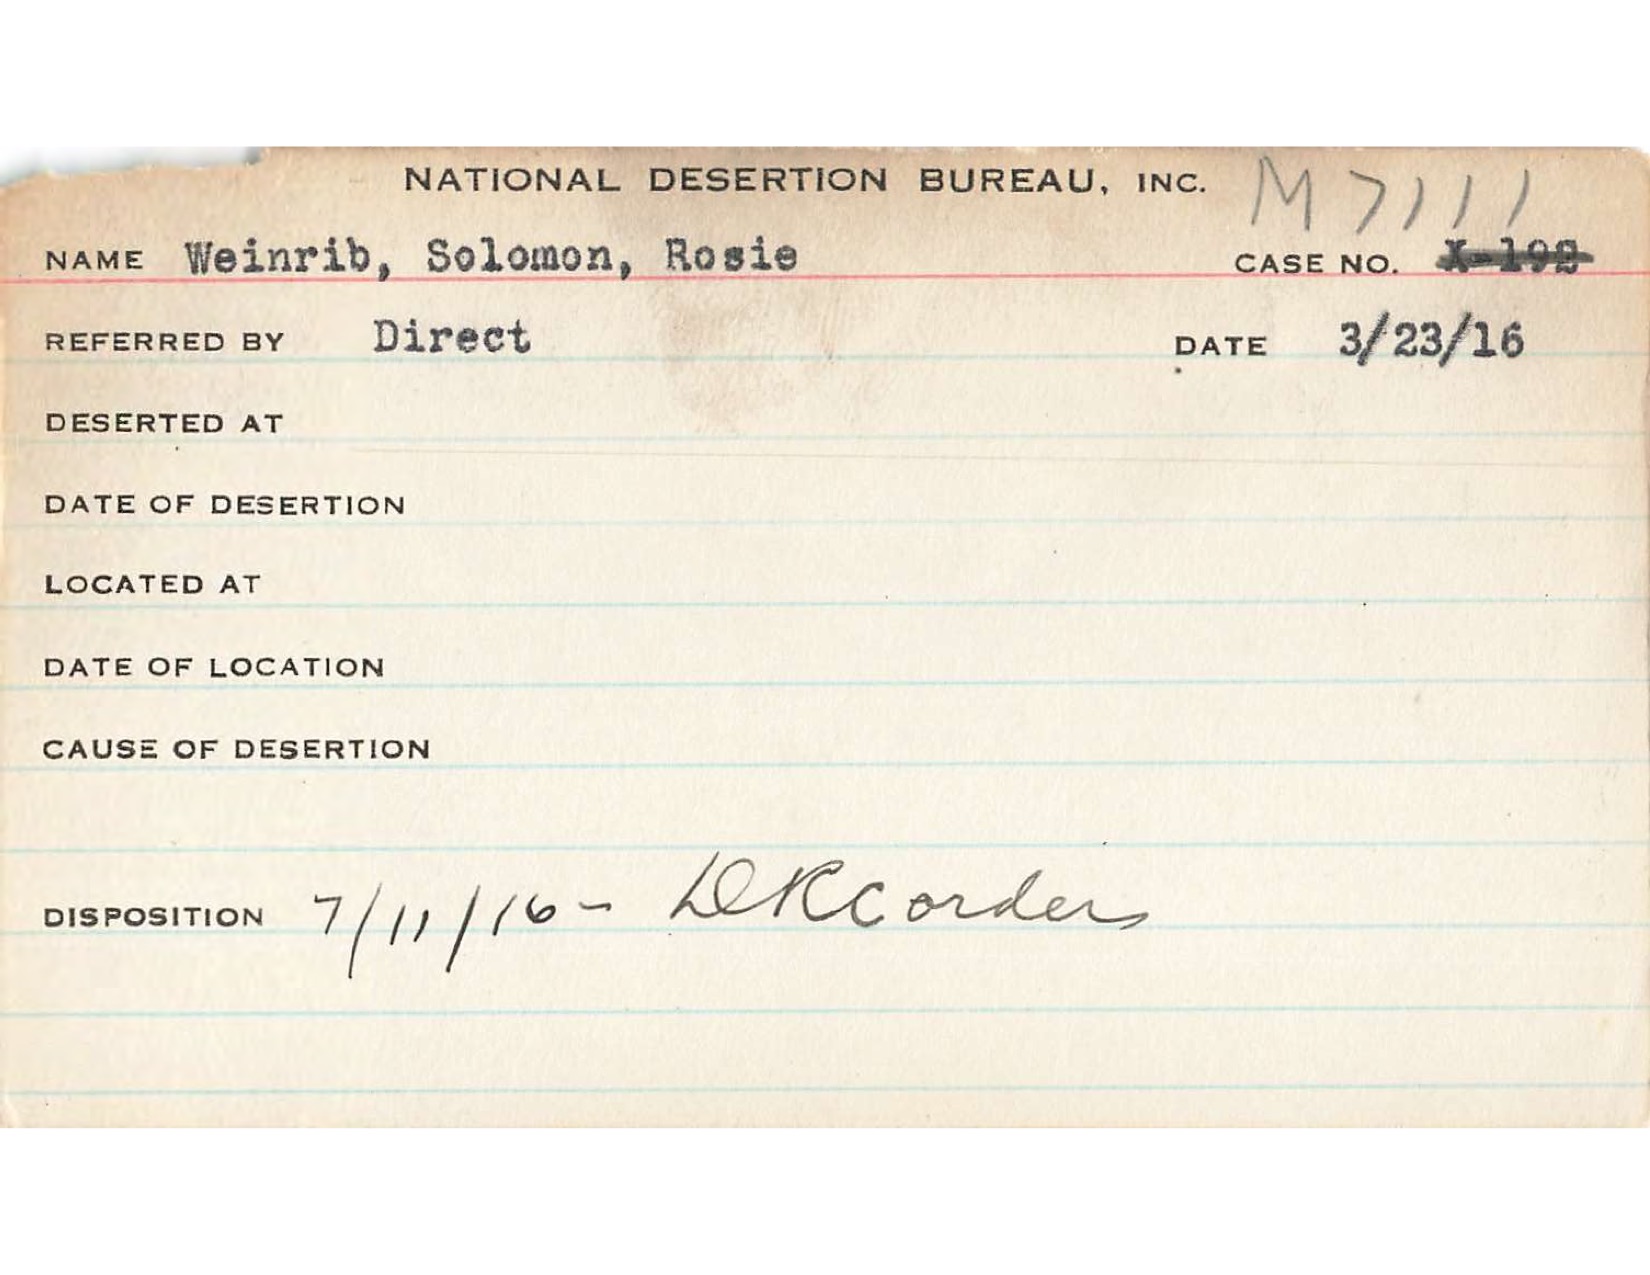 NATIONAL DESERTION BUREAU, INC. M 7111
NAME Weinrib, Solomon, Rosie CASE NO. X-192
REFERRED BY Direct DATE 3/23/16
DESERTED AT
DATE OF DESERTION
LOCATED AT
DATE OF LOCATION
CAUSE OF DESERTION
DISPOSITION 7/11/16 - DRC orders